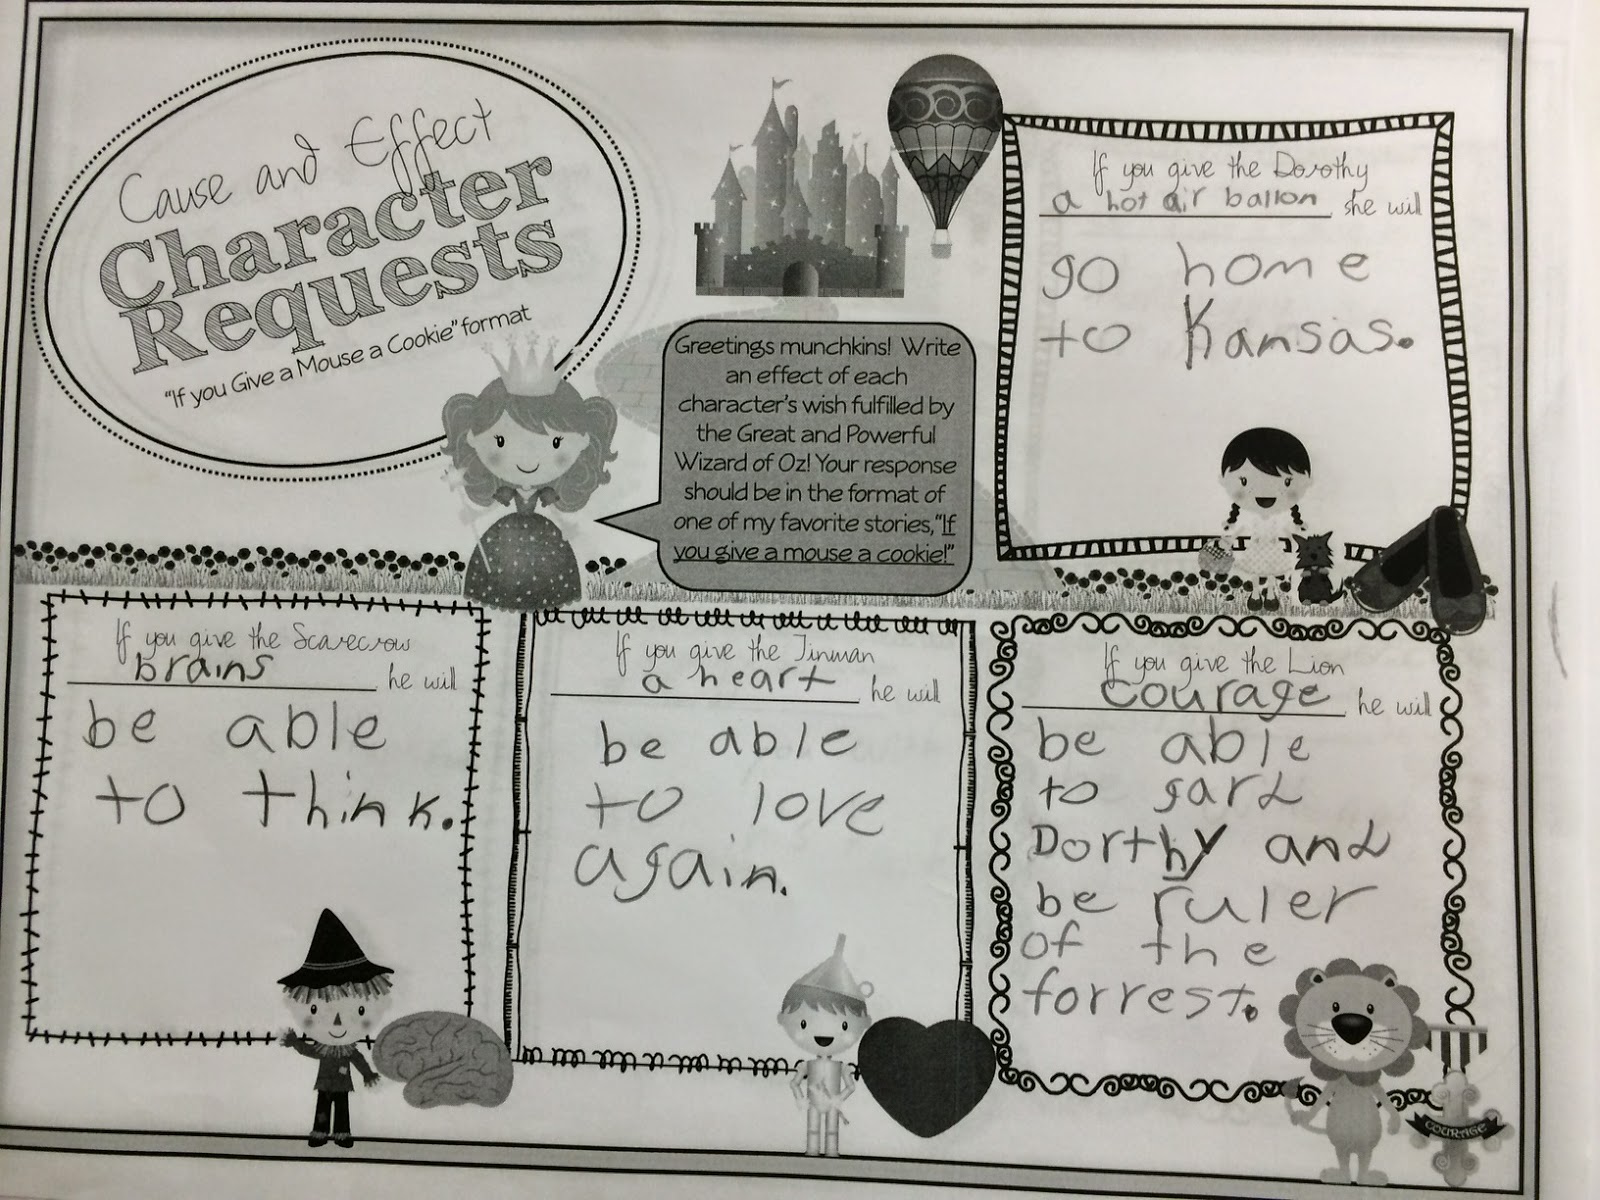 Cause and Effect
Character
Requests
"If you Give a Mouse a Cookie" format
Greetings munchkins! Write
an effect of each
character's wish fulfilled by
the Great and Powerful
Wizard of Oz! Your response
should be in the format of
one of my favorite stories, "If
you give a mouse a cookie!"
If you give the Dorothy
a hot air ballon she will
go home
to Kansas.
If you give the Scarecrow
brains he will
be able
to think.
If you give the Tinman
a heart he will
be able
to love
again.
If you give the Lion
courage he will
be able
to gard
Dorthy and
be ruler
of the
forrest.
COURAGE